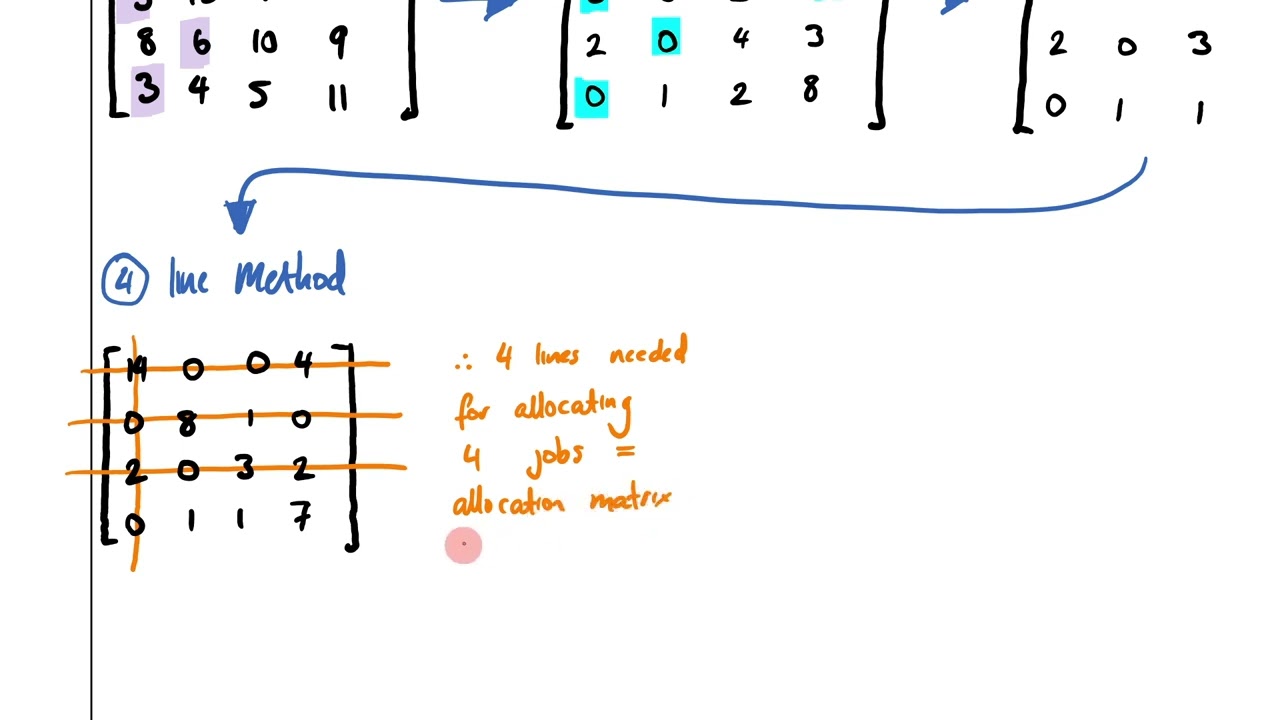 8 6 10 9
3 4 5 11
2 0 4 3
0 1 2 8
2 0 3
0 1 1
4 line Method
14 0 0 4
0 8 1 0
2 0 3 2
0 1 1 7
∴ 4 lines needed
for allocating
4 jobs =
allocation matrix